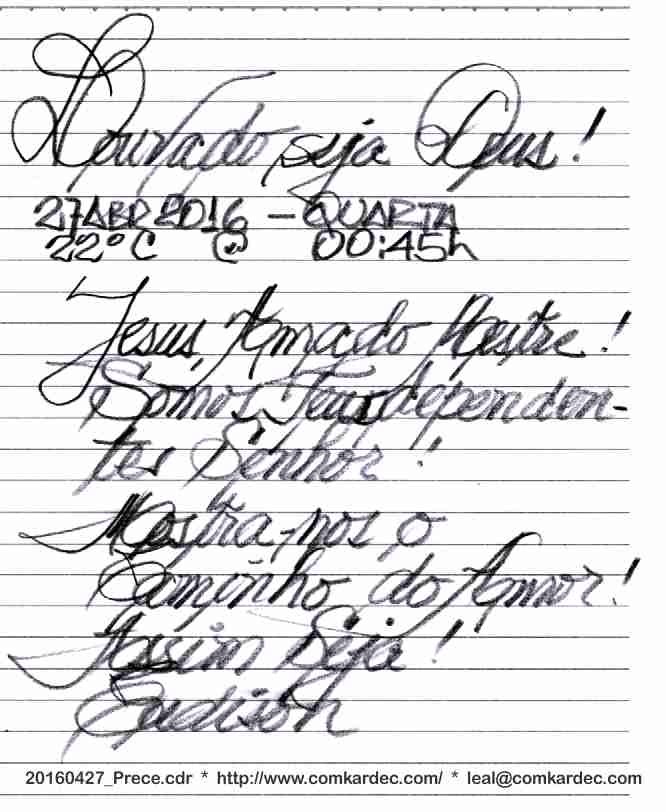 Louvado seja Deus!
27ABR2016 – QUARTA
22°C @ 00:45h
Jesus, Amado Mestre!
Somos Teus dependen-
tes Senhor!
Mostra-nos o
Caminho do Amor!
Assim Seja!
20160427_Prece.cdr * http://www.comkardec.com/ * leal@comkardec.com